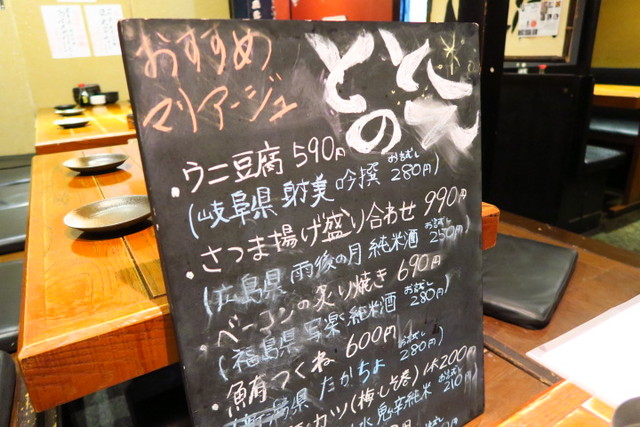 おすすめ
マリアージュ
・ウニ豆腐 590円
(岐阜県 射美 吟撰 お試し 280円)
・さつま揚げ盛り合わせ 990円
(広島県 雨後の月 純米酒 お試し 250円)
・ベーコンの炙り焼き 690円
(福島県 写楽 純米酒 お試し 280円)
・鮪つくね 600円
たかちよ お試し 280円)
カツ(梅・しそ巻)1本200円
鬼辛純米 お試し 210円